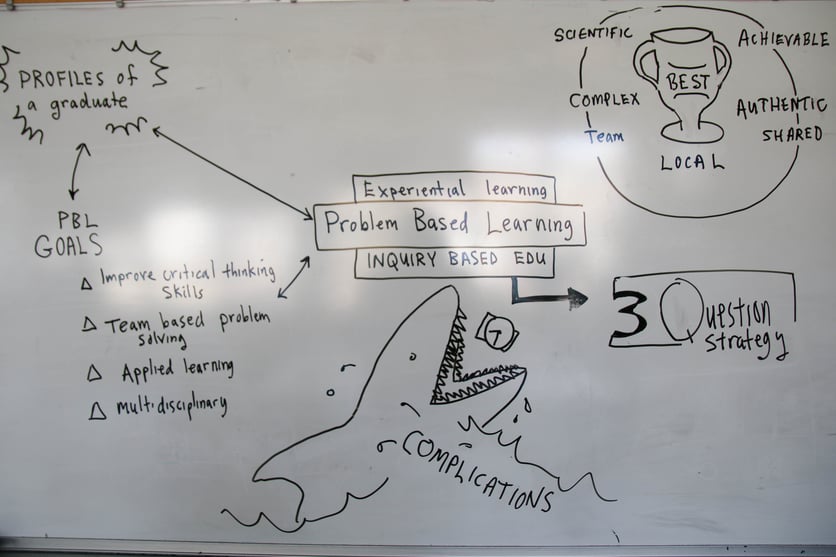 PROFILES of
a graduate
PBL
GOALS
Improve critical thinking
Skills
Team based problem
solving
Applied learning
multidisciplinary
Experiential learning
Problem Based Learning
INQUIRY BASED EDU
3 Question
strategy
COMPLICATIONS
SCIENTIFIC
ACHIEVABLE
BEST
COMPLEX
AUTHENTIC
Team
SHARED
LOCAL